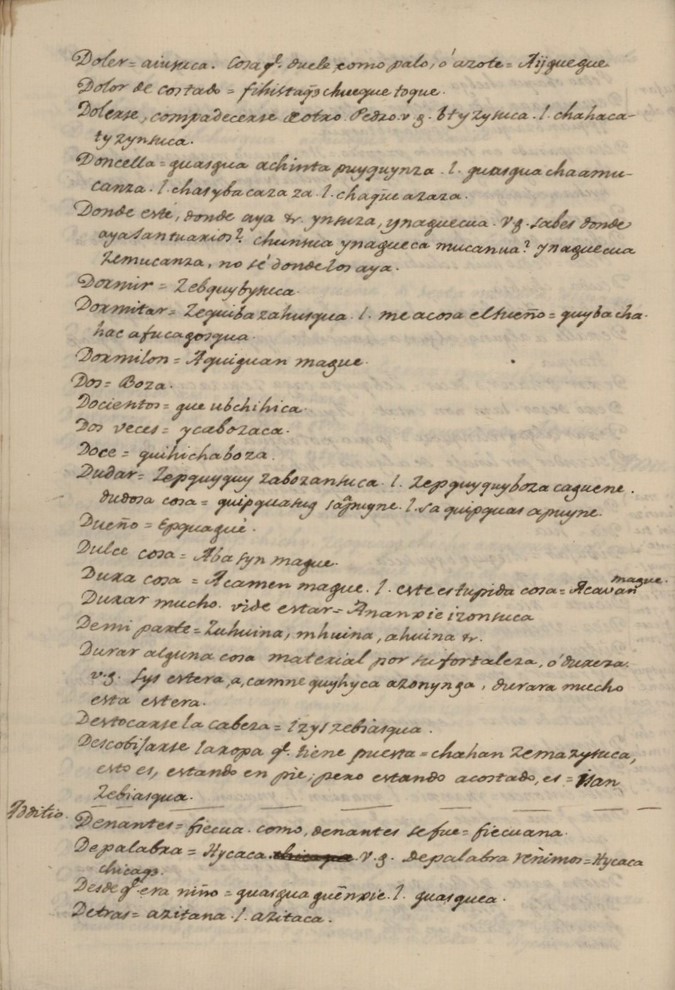 Doler= aiusuca. Cosa q̃. duele, como palo, ó azote= Aijguegue
Dolor de costado = fihistaq̃ chuegue toque.
Dolerse, compadecerse de otro. Pedro. v. g. btyzysuca. l. chahaca-
tyzynsuca.
Doncella= guasgua achinta puyquynza. l. guasgua chaamu-
canza. l. chasybacaza za. l. chaq̃ue azaza.
Donde esté, donde aya &. ynsuza, ynaquecua. v. g. sabes donde
aya santuarios? chunsua ynaqueca mucanua? ynaquecua
zemucanza, no sé donde los aya.
Dormir = Zebquybysuca.
Dormitar= Zequiba zahusqua. l. me acosa el sueño= quyba cha-
hac afucagosqua.
Dormilon= Aquiguan mague.
Dos= Boza.
Docientos= gue ubchihica.
Dos veces= ycabozaca.
Doce= quihichaboza.
Dudar= Zepquyquy zabozansuca. l. zepquyquyboza caguene.
dudosa cosa= quipquasug l. sa quipquas apuyne.
Dueño= Epquague.
Dulce cosa= Aba syn mague.
Dura cosa = Acamen mague. l. este estupida cosa= Acavan mague.
Durar mucho. vide estar= Ananxie izonsuca
Demi parte= Zuhuina, mhuina, ahuina &.
Durar alguna cosa material por su fortaleza, ó dureza.
v. g. sys estera, a, camne quyhyca azonynga, durara mucho
esta estera.
Destocarse la cabeza= izys zebiasqua.
Descobijarse la ropa q̃. tiene puesta= chahan zemazysuca,
esto es, estando en pie; pero estando acostado, es= isan
zebiasqua.
Additio.
Denantes= fiecua. como, denantes se fue= fiecuana.
De palabra= Hycaca v. g. de palabra reñimos= Hycaca
chicags.
Desde q̃. era niño= guasgua guẽnxie. l. guasguea.
Detras= azitana. l. azitaca.